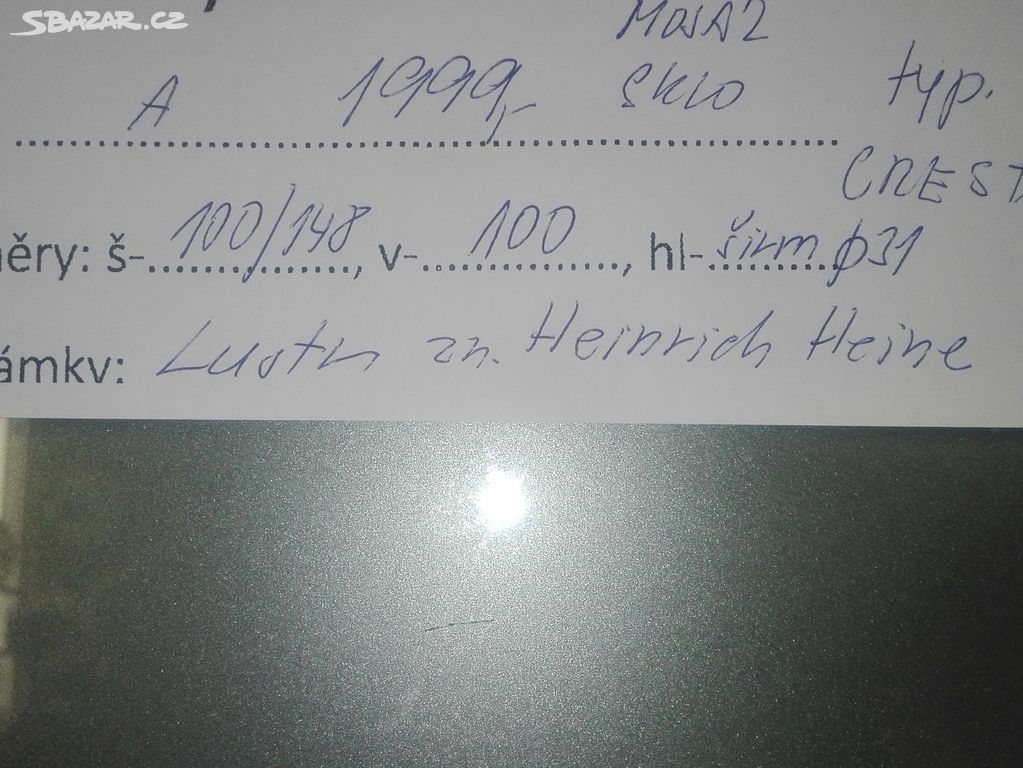 SBAZAR.CZ
MOSAZ
A 1999,- SKLO typ.
CREST
ěry: š-100/148, v-100, hl-širm ϕ31
ámky: Lustr zn. Heinrich Heine